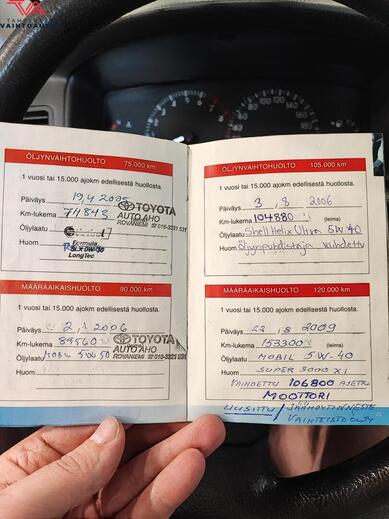 VAIHTOAUTO
ÖLJYNVAIHTOHUOLTO 75.000 km
1 vuosi tai 15.000 ajokm edellisestä huollosta.
Päiväys 19.4 2005
Km-lukema 74843
TOYOTA
AUTO AHO
ROVANIEMI
Öljylaatu
Formula
SLX 0W-30
LongTec
Huom
MÄÄRÄAIKAISHUOLTO 90.000 km
1 vuosi tai 15.000 ajokm edellisestä huollosta.
Päiväys 2006
Km-lukema 89560
TOYOTA
AUTO AHO
ROVANIEMI
Öljylaatu MOBIL 5W50
Huom
ÖLJYNVAIHTOHUOLTO 105.000 km
1 vuosi tai 15.000 ajokm edellisestä huollosta.
Päiväys 3 8 2006
Km-lukema 104880 (leima)
Öljylaatu Shell Helix Ultra 5W-40
Huom Öljynpuhdistaja vaihdettu
MÄÄRÄAIKAISHUOLTO 120.000 km
1 vuosi tai 15.000 ajokm edellisestä huollosta.
Päiväys 22 .8 2009
Km-lukema 153300 (leima)
Öljylaatu MOBIL 5W-40
Huom SUPER 3000 X1
VAIHDETTU 106800 AJETTU
MOOTTORI
UUSITTU / JÄÄHDYTINNESTE
VAIHTEISTOÖLJY